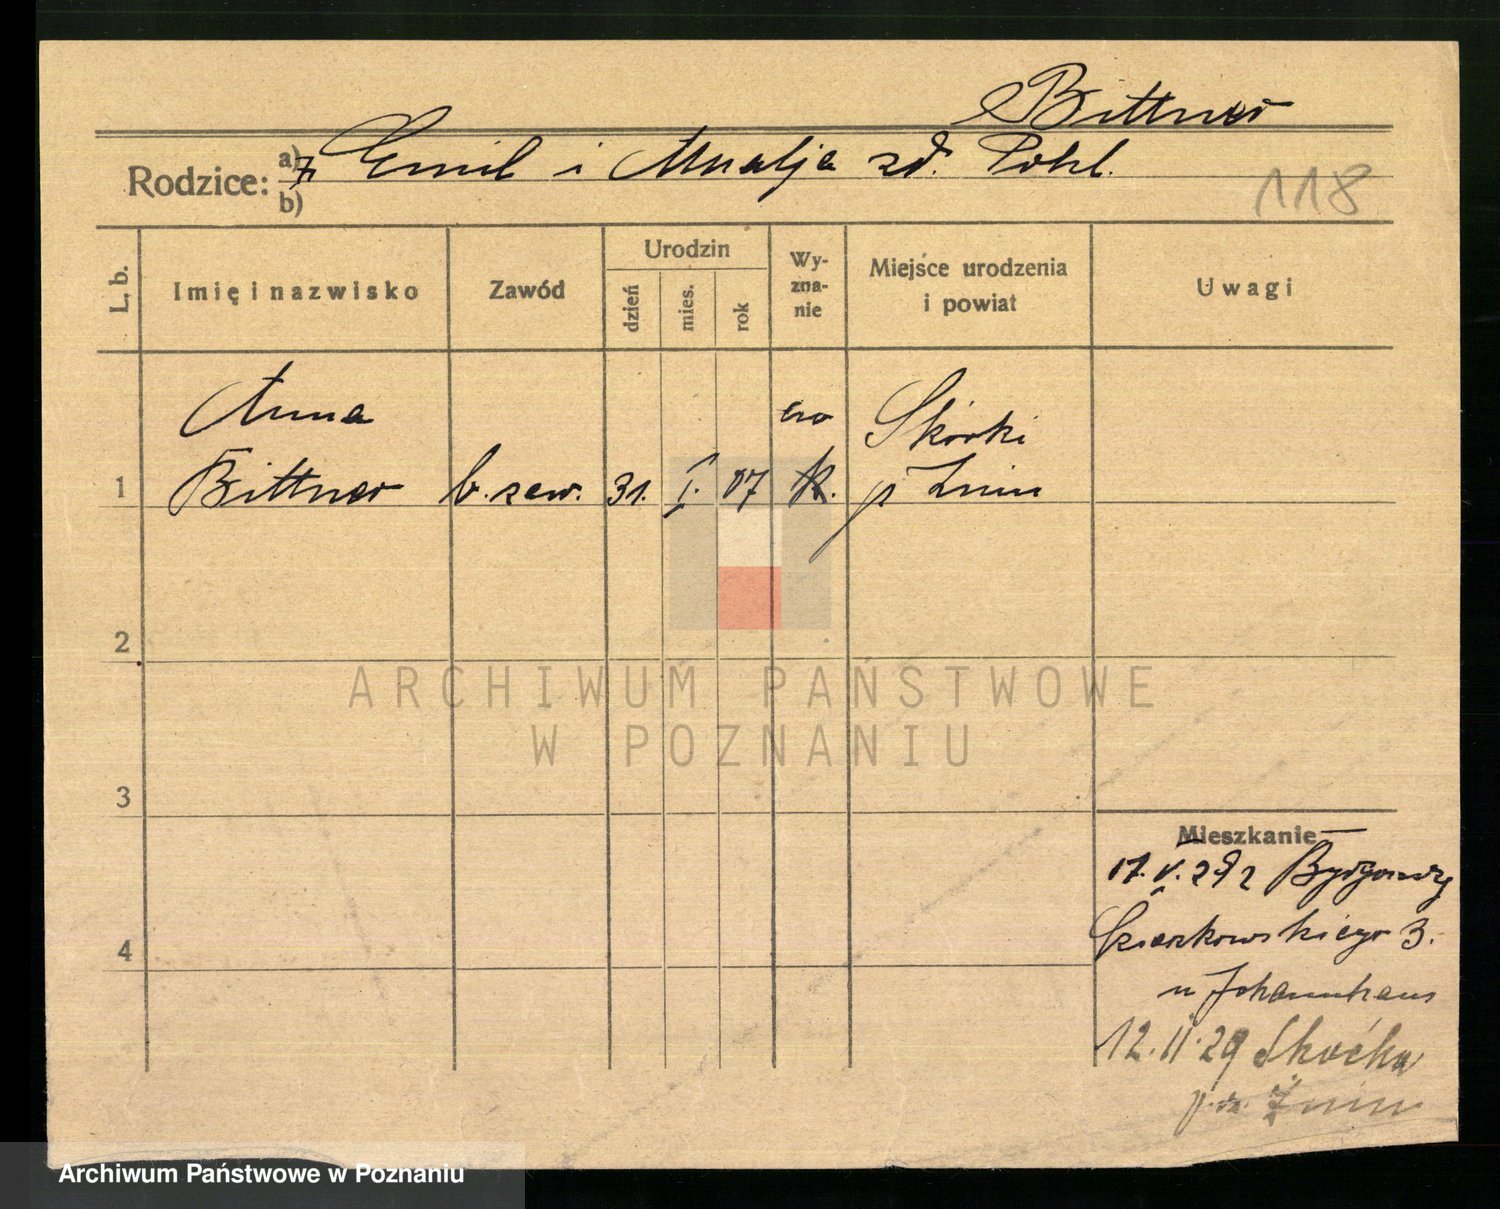 Bittner
Rodzice: a) Emil i Amalja zd. Pohl.
b)
118
L. b.
Imię i nazwisko
Zawód
Urodzin
dzień
mies.
rok
Wy-
zna-
nie
Miejsce urodzenia
i powiat
Uwagi
Anna
Bittner
1
b. zaw.
31.
I.
07
Skórki
p Żnin
2
3
4
ARCHIWUM PAŃSTWOWE
W POZNANIU
Mieszkanie
17. V. 29 z Bydgoszczy
3.
u Johannhaus
12. II. 29
Żnin
Archiwum Państwowe w Poznaniu